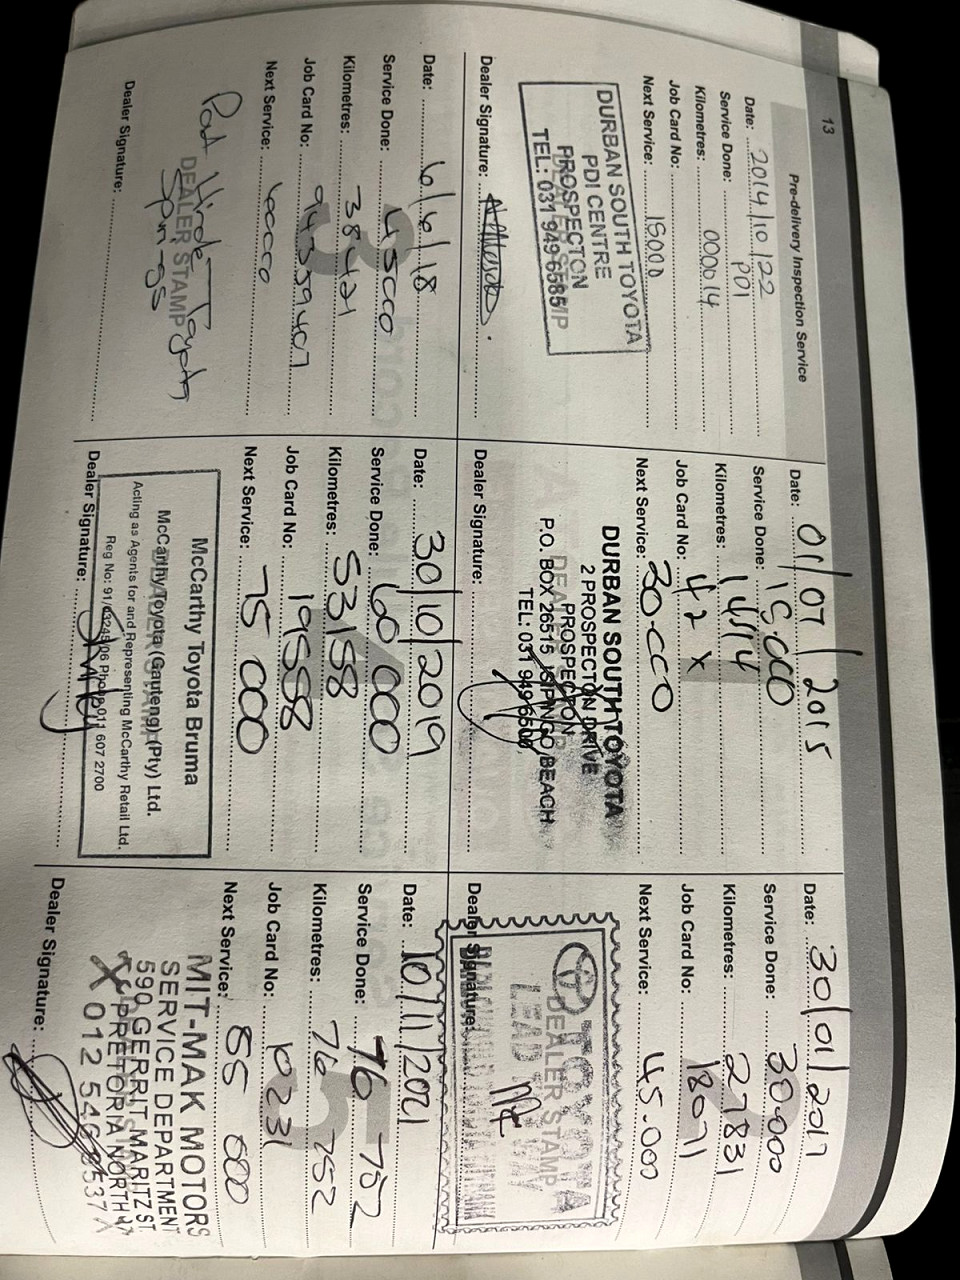 13
Pre-delivery Inspection Service
Date: 2014/10/22
Service Done: PDI
Kilometres: 000014
Job Card No:
Next Service: 15000
DURBAN SOUTH TOYOTA
PDI CENTRE
PROSPECTON
TEL: 031 949 6585
Dealer Signature:
Date: 01/07/2015
Service Done: 15000
Kilometres: 14514
Job Card No: 42 x
Next Service: 30000
DURBAN SOUTH TOYOTA
2 PROSPECTON DRIVE
PROSPECTON
P.O. BOX 26515 ISIPINGO BEACH
TEL: 031 949 6500
Dealer Signature:
Date: 30/01/2017
Service Done: 30000
Kilometres: 27831
Job Card No: 18071
Next Service: 45.000
TOYOTA
DEALER STAMP
LEAD
Dealer Signature:
3
Date: 6/6/18
Service Done: 45000
Kilometres: 38421
Job Card No: 943359407
Next Service: 60000
Hinde Toyota
DEALER STAMP
Springs
Dealer Signature:
4
Date: 30/10/2019
Service Done: 60 000
Kilometres: 53158
Job Card No: 19558
Next Service: 75 000
McCarthy Toyota Bruma
McCarthy Toyota (Gauteng) (Pty) Ltd.
Acting as Agents for and Representing McCarthy Retail Ltd.
Reg No: 91/03245/06 Phone 011 607 2700
Dealer Signature:
5
Date: 10/11/2021
Service Done: 76 752
Kilometres: 76 752
Job Card No: 10231
Next Service: 85 000
MIT-MAK MOTORS
SERVICE DEPARTMENT
590 GERRIT MARITZ ST
PRETORIA NORTH
Dealer Signature: